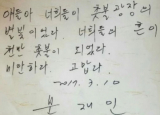 얘들아 너희들이 촛불광장의
별빛이었다. 너희들의 혼이
천만 촛불이 되었다.
미안하다. 고맙다.
2017. 3. 10
문재인